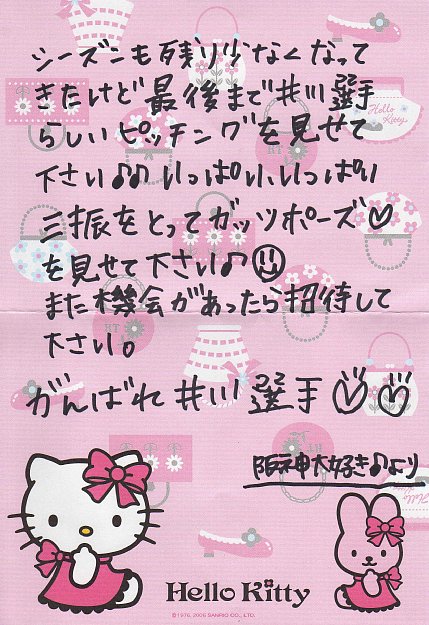 シーズンも残り少なくなって
きたけど最後まで井川選手
らしいピッチングを見せて
下さい♪♪いっぱいいっぱい
三振をとってガッツポーズ♡
を見せて下さい♪
また機会があったら招待して
下さい。
がんばれ井川選手
阪神大好き♪より
Hello Kitty
Hello Kitty
©1976, 2006 SANRIO CO., LTD.